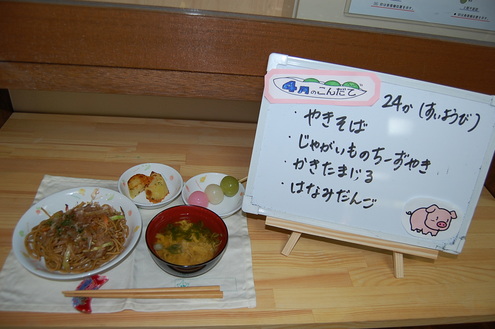 4月のこんだて
24か(すいようび)
・やきそば
・じゃがいものちーずやき
・かきたまじる
・はなみだんご